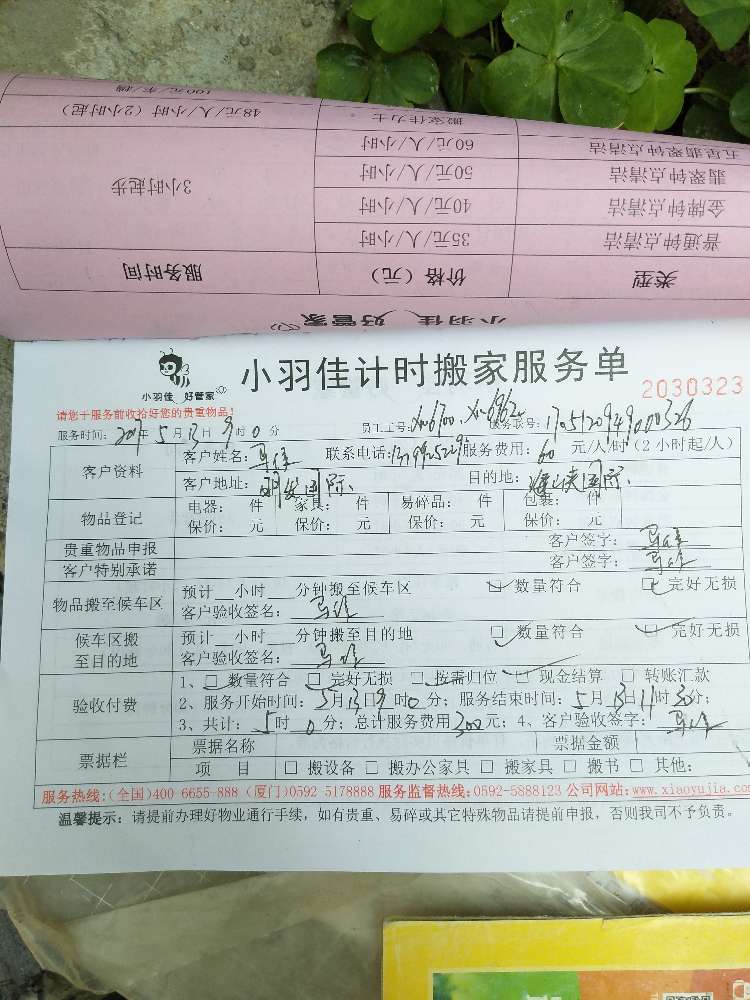 小羽佳 好管家
类型 价格（元） 服务时间
普通钟点清洁 35元/人/小时 3小时起步
金牌钟点清洁 40元/人/小时
翡翠钟点清洁 50元/人/小时
五星翡翠钟点清洁 60元/人/小时
搬家佳力士 48元/人/小时（2小时起）
100元/车/趟
小羽佳 好管家
小羽佳计时搬家服务单
2030323
请您于服务前收拾好您的贵重物品！
服务时间：2017年5月13日9时0分 员工工号： 服务联号：
客户资料 客户姓名： 联系电话： 服务费用：60元/人/时(2小时起/人)
客户地址：明发国际 目的地：海峡国际
物品登记 电器： 件 家具： 件 易碎品： 件 包裹： 件
保价： 元 保价： 元 保价： 元 保价： 元
贵重物品申报 客户签字：
客户特别承诺 客户签字：
物品搬至候车区 预计__小时___分钟搬至候车区 □ 数量符合 □ 完好无损
客户验收签名：
候车区搬至目的地 预计__小时___分钟搬至目的地 □ 数量符合 □ 完好无损
客户验收签名：
验收付费 1、□ 数量符合 □ 完好无损 □ 按需归位 □ 现金结算 □ 转账汇款
2、服务开始时间：5月13日9时0分；服务结束时间：5月13日11时30分；
3、共计：5时0分；总计服务费用300元；4、客户验收签字：
票据栏 票据名称 票据金额
项 目 □ 搬设备 □ 搬办公家具 □ 搬家具 □ 搬书 □ 其他：
服务热线：(全国)400-6655-888 (厦门)0592 5178888 服务监督热线：0592-5888123 公司网站：www.xiaoyujia.com
温馨提示：请提前办理好物业通行手续，如有贵重、易碎或其它特殊物品请提前申报，否则我司不予负责。